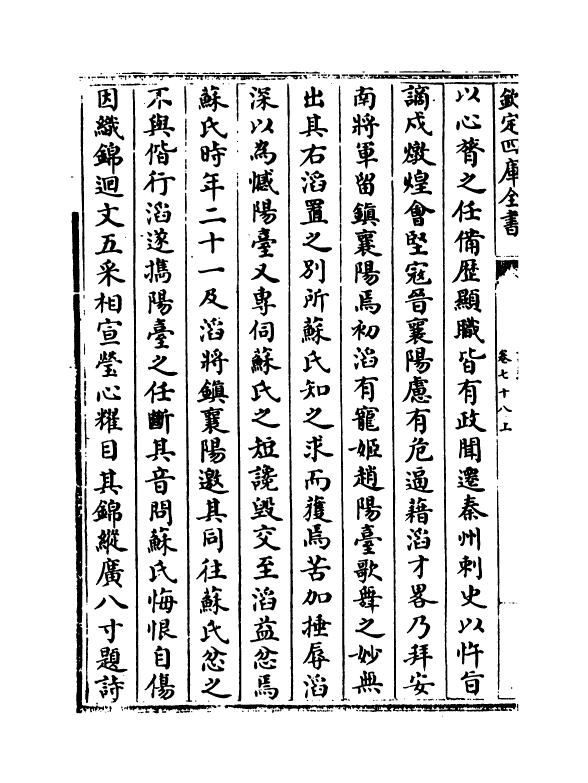 欽定四庫全書
卷七十八上
以心膂之任備歷顯職皆有政聞遷秦州刺史以忤旨
謫戍燉煌會堅寇晉襄陽慮有危逼藉滔才畧乃拜安
南將軍留鎮襄陽焉初滔有寵姬趙陽臺歌舞之妙無
出其右滔置之别所蘇氏知之求而獲焉苦加捶辱滔
深以為憾陽臺又專伺蘇氏之短讒毀交至滔益忿焉
蘇氏時年二十一及滔將鎮襄陽邀其同往蘇氏忿之
不與偕行滔遂携陽臺之任斷其音問蘇氏悔恨自傷
因織錦迴文五采相宣瑩心耀目其錦縱廣八寸題詩